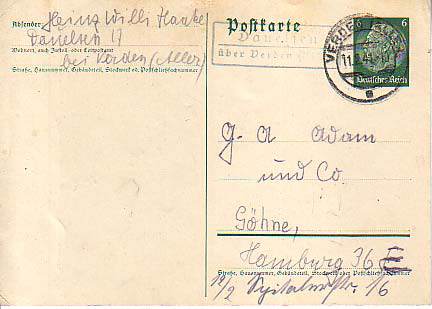 Absender: Heinz Willi Hanke
Dauelsen 17
Wohnort, auch Zustell- oder Leitpostamt
bei Verden (Aller)
Straße, Hausnummer, Gebäudeteil, Stockwerk od. Postschließfachnummer
Postkarte
Dauelsen
über Verden
VERDEN (ALLER)
6
Deutsches Reich
G. A Adam
und Co.
Söhne,
Hamburg 36
Straße, Hausnummer, Gebäudeteil, Stockwerk oder Postschließfachnummer